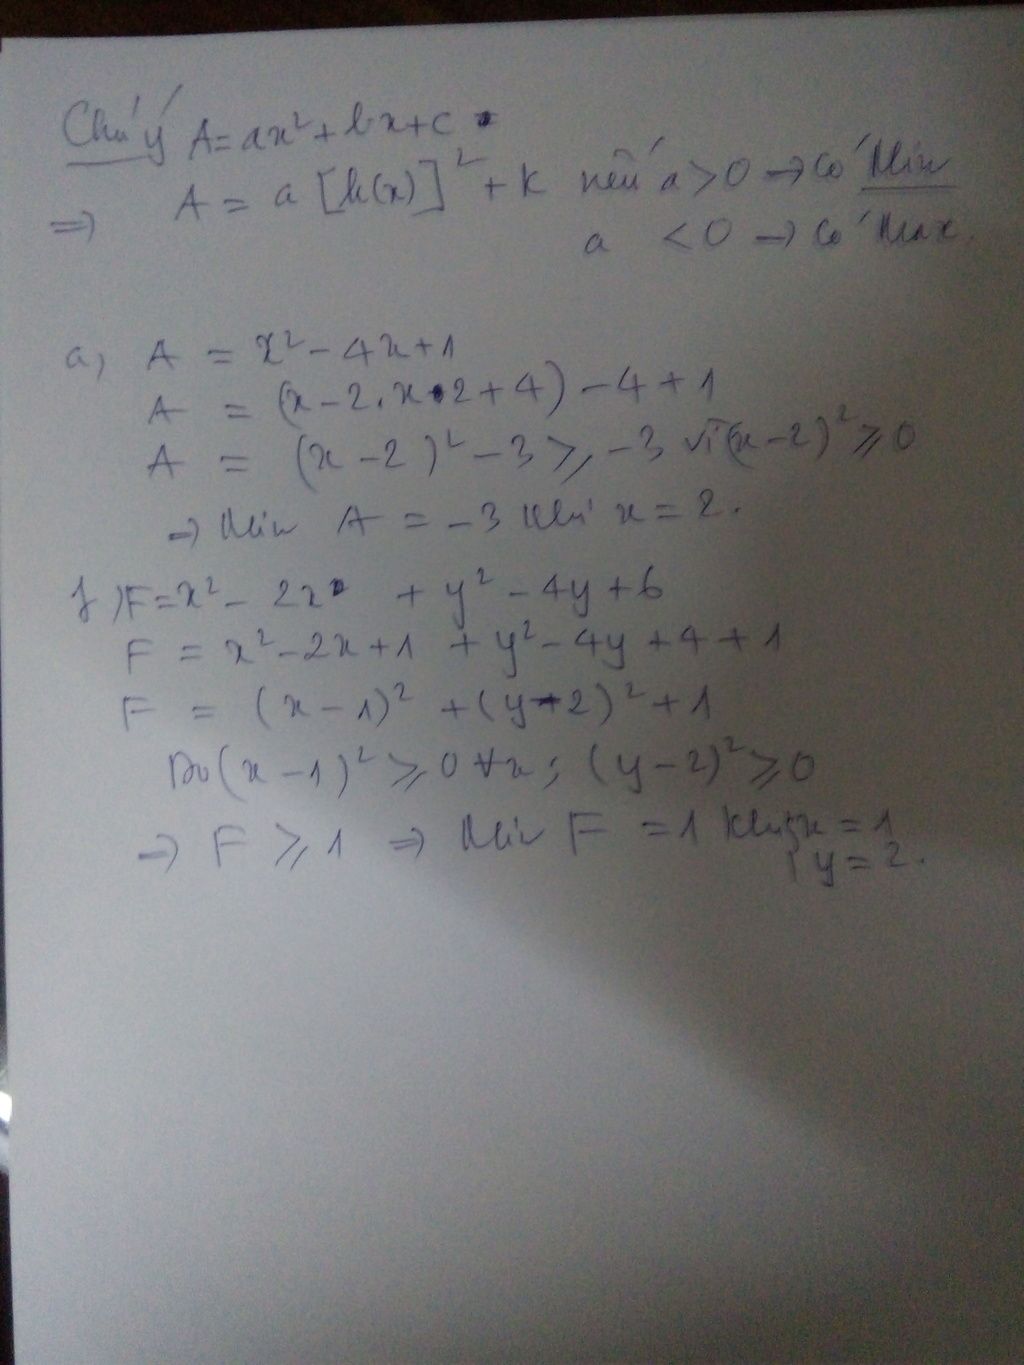 Chú ý A = ax² + bx + c
⇒ A = a [h(x)]² + k nếu a > 0 → có Min
a < 0 → có Max.
a, A = x² - 4x + 1
A = (x - 2.x.2 + 4) - 4 + 1
A = (x - 2)² - 3 ≥ -3 vì (x - 2)² ≥ 0
⇒ Min A = -3 khi x = 2.
f) F = x² - 2x + y² - 4y + 6
F = x² - 2x + 1 + y² - 4y + 4 + 1
F = (x - 1)² + (y - 2)² + 1
Do (x - 1)² ≥ 0 ∀x ; (y - 2)² ≥ 0
⇒ F ≥ 1 ⇒ Min F = 1 khi { x = 1
y = 2.